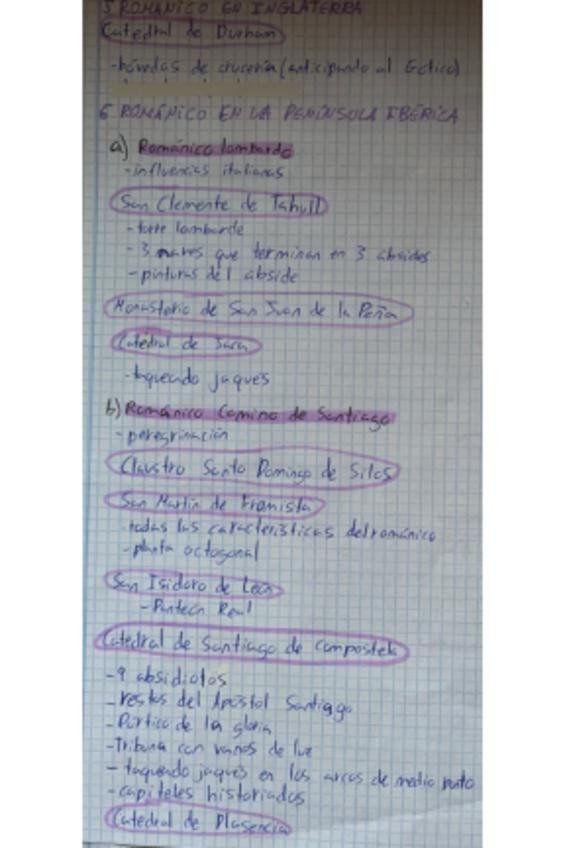 5 ROMÁNICO EN INGLATERRA
Catedral de Durham
-bóvedas de crucería (anticipando al Gótico)
6 ROMÁNICO EN LA PENÍNSULA IBÉRICA
a) Románico lombardo
-influencias italianas
San Clemente de Tahull
-torre lombarda
-3 naves que terminan en 3 ábsides
-pinturas del abside
Monasterio de San Juan de la Peña
Catedral de Jaca
-taqueado jaqués
b) Románico Camino de Santiago
-peregrinación
Claustro Santo Domingo de Silos
San Martín de Fromista
-todas las características del románico
-planta octogonal
San Isidoro de León
-Panteón Real
Catedral de Santiago de Compostela
-9 absidiolos
-restos del Apóstol Santiago
-Pórtico de la gloria
-Tribuna con vanos de luz
-taqueado jaqués en los arcos de medio punto
-capiteles historiados
Catedral de Plasencia